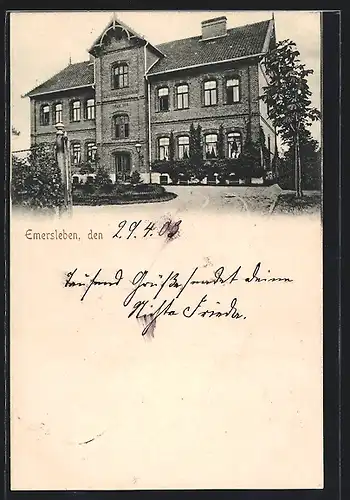 Emersleben, den 29.4.03
Tausend Grüße sendet deine
Nichte Frieda.